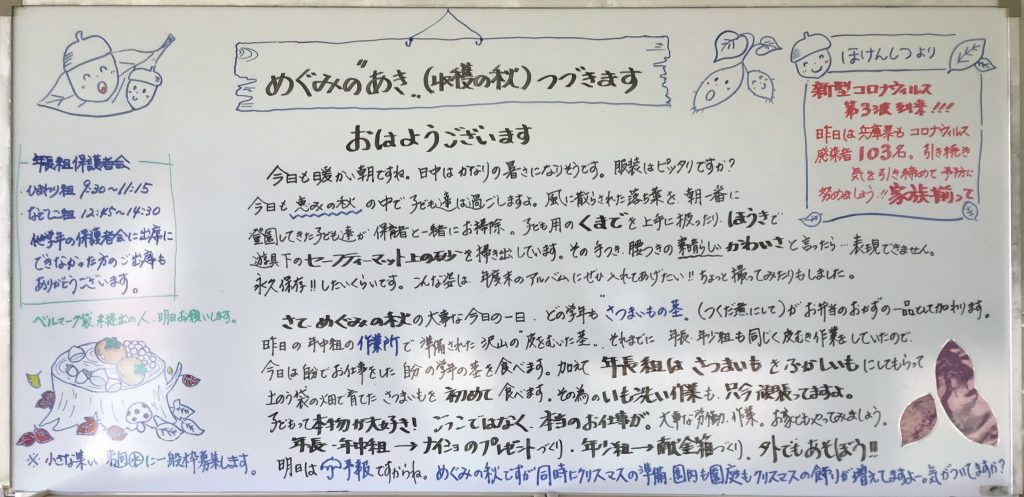 めぐみの"あき"(収穫の秋)つづきます
おはようございます
今日も暖かい朝ですね。日中はかなりの暑さになりそうです。服装はピッタリですか?
今日も 恵みの秋 の中で子ども達は過ごしますよ。風に散られた落ち葉を朝一番に
登園してきた子ども達が保護者と一緒にお掃除。子ども用のくまでを上手に扱ったり、ほうきで
遊具下のセーフティーマット上の砂を掃き出しています。その手つき、腰つきの素晴らしいかわいさと言ったら…表現できません。
永久保存!!したいくらいです。こんな姿は、年度末のアルバムにぜひ入れてあげたい!!ちょっと撮ってみたりもしました。
さて、めぐみの秋の大事な今日の一日、どの学年も"さつまいもの茎"(つくだ煮にして)がお弁当のおかずの一品として加わります。
昨日の年中組の作業所で準備された沢山の"皮をむいた茎"。それまでに年長・年少組も同じく皮むき作業をしていたので
今日は自分でお仕事をした自分の学年の茎を食べます。加えて年長組はさつまいもをふかしいもにしてもらって
土のう袋の畑で育てたさつまいもを初めて食べます。その為のいも洗い作業も、只今頑張ってますよ。
子どもって本物が大好き!ごっこではなく、本当のお仕事が。大事な労働、作業。お家でもやってみましょう。
年長・年中組→ナイショのプレゼントづくり、年少組→献金箱づくり、外でもあそぼう!!
明日は予報ですからね。めぐみの秋ですが同時にクリスマスの準備、園内も園庭もクリスマスの飾りが増えてますよー。気がついてますか?
年長組保護者会
・ひまわり組 9:30〜11:15
・なでしこ組 12:45〜14:30
他学年の保護者会に出席に
できなかった方のご出席も
ありがとうございます。
ベルマーク袋未提出の人、明日お願いします。
※小さな集い 来週に一般枠募集します。
ほけんしつより
新型コロナウィルス
第3波到来!!!
昨日は兵庫県もコロナウィルス
感染者103名。引き続き
気を引き締めて予防に
努めましょう!!家族揃って